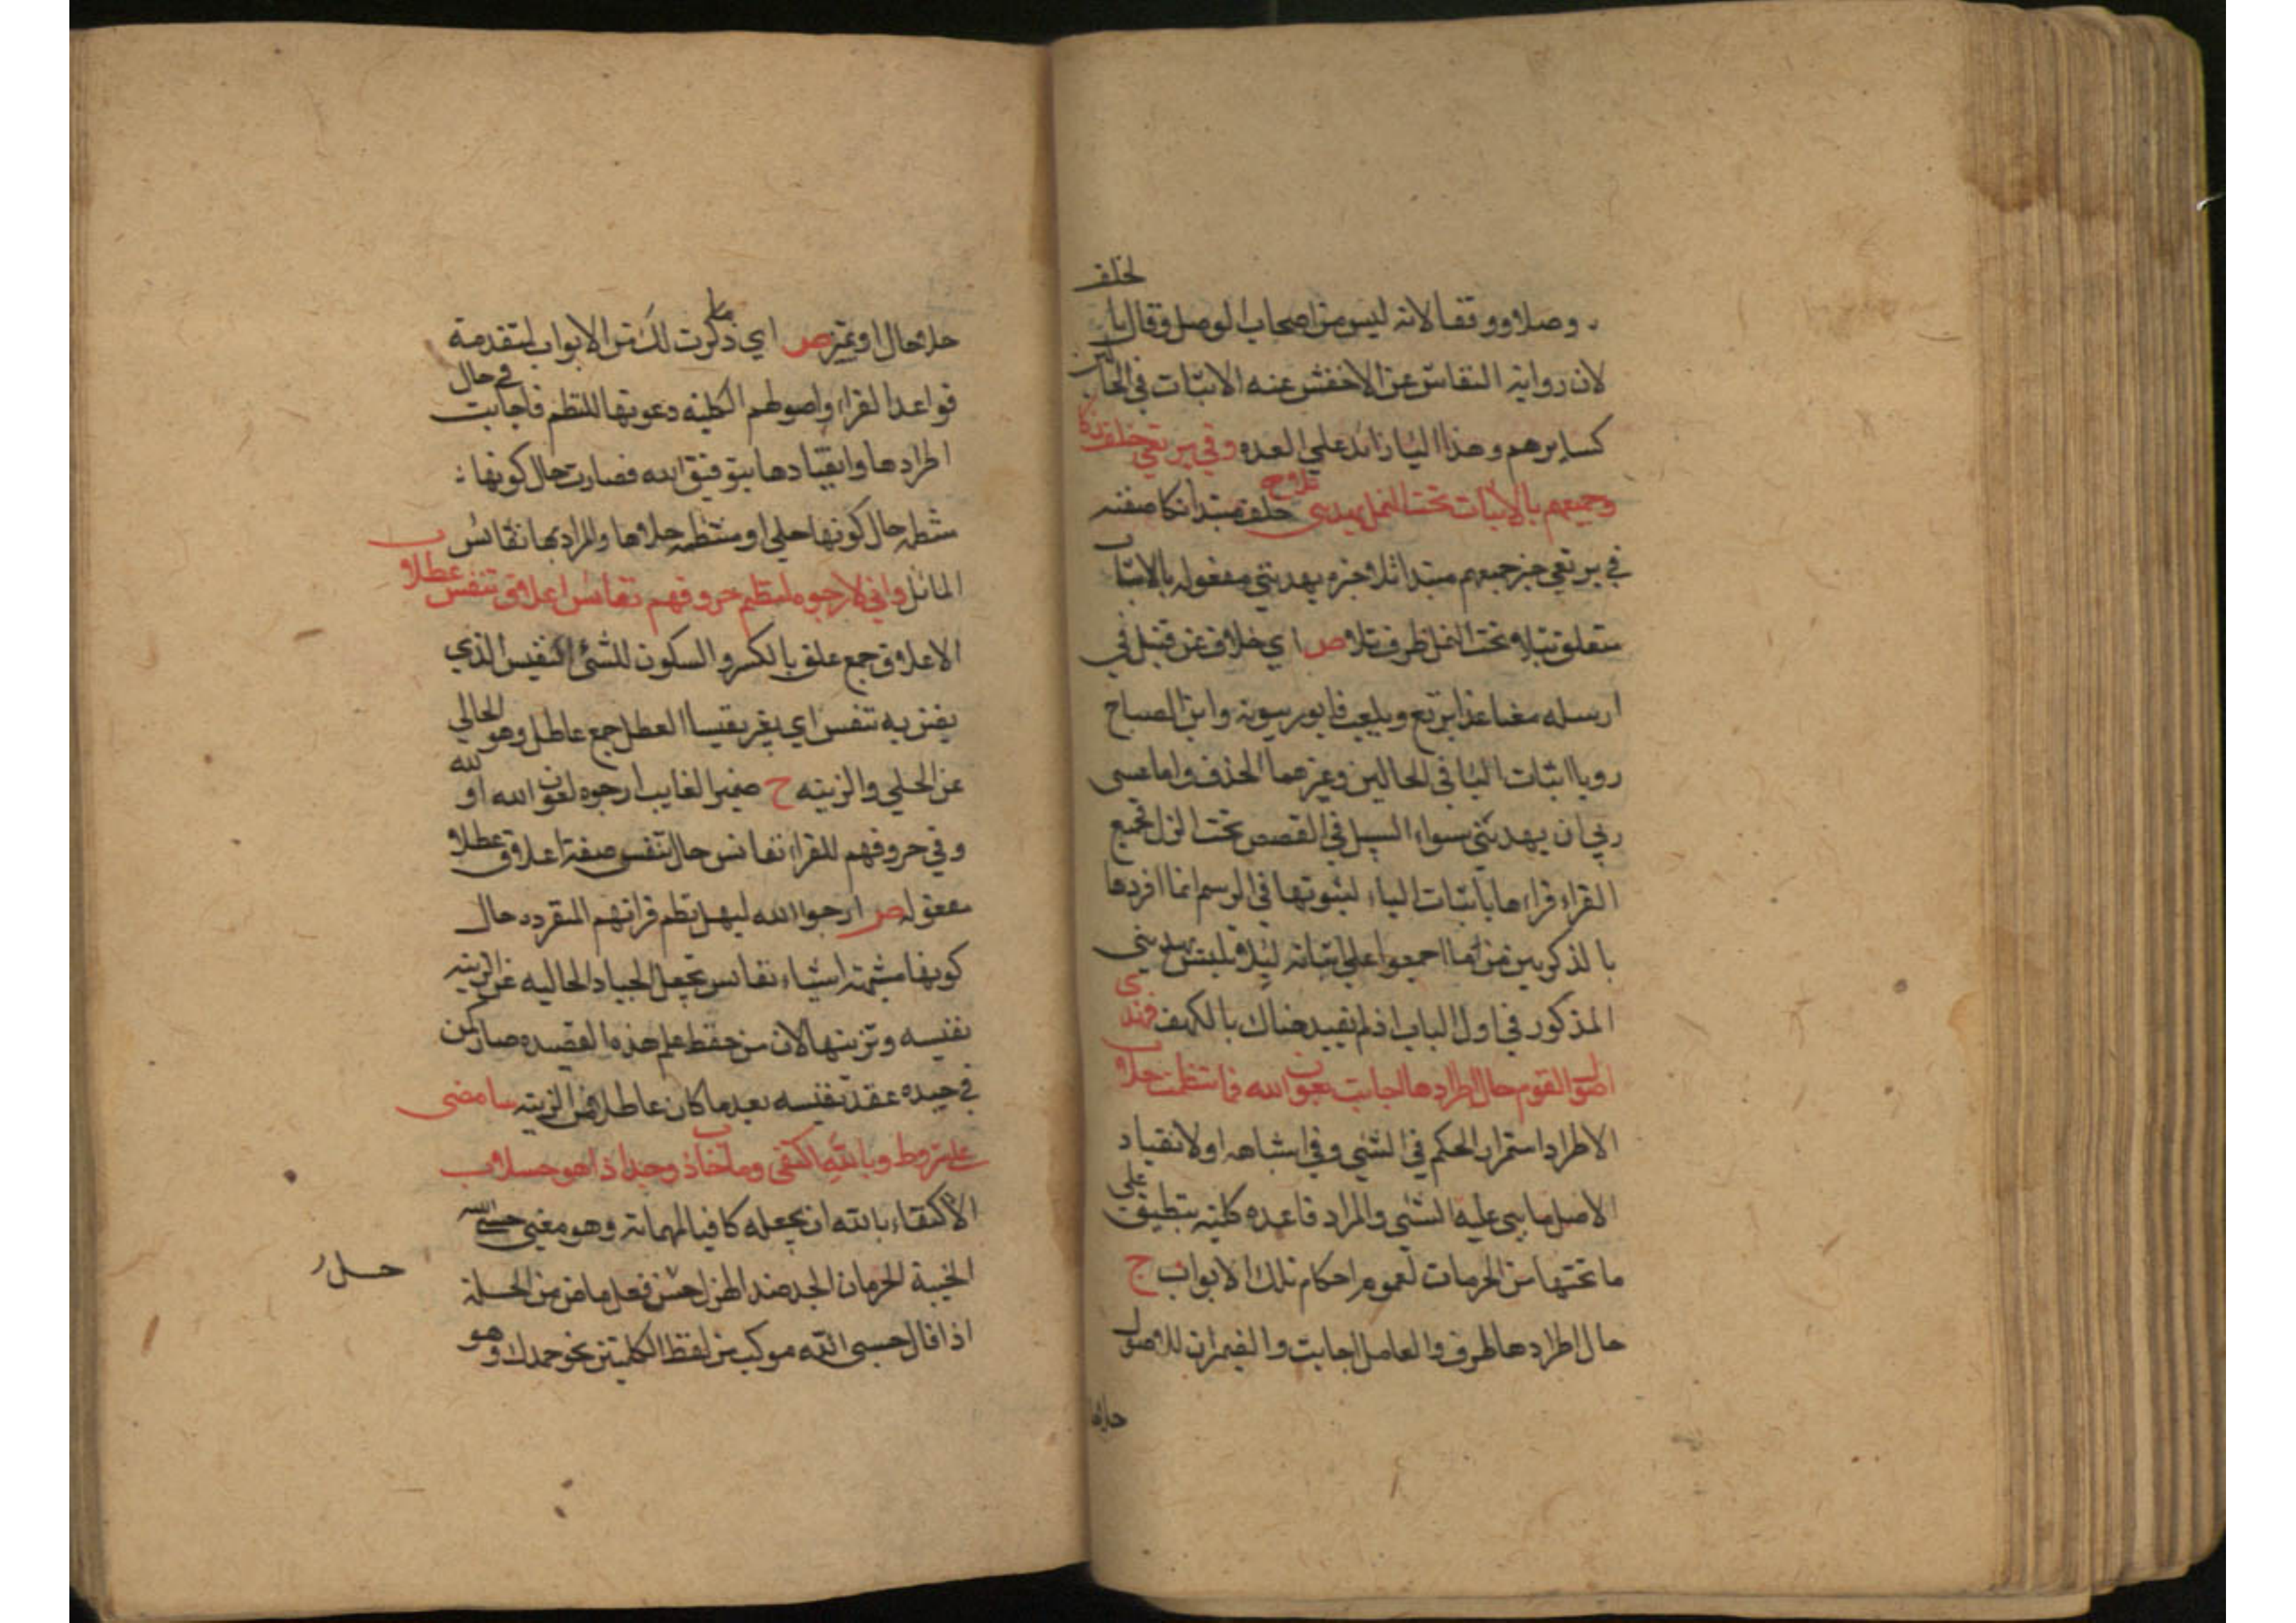 لخلف
وصلا ووقفا لانه ليس من اصحاب الوصل وقال با
لان رواية النقاش عن الاخفش عنه الاثبات في الحالين
كسايرهم وهذا اليا زائد على العده وفي نرتعي خلف زكا
وجميعهم بالاثبات تحت النمل يهديني تلا ح خلف مبتدا زكا صفته
في نرتعي خبر جميعهم مبتدا تلا خبره يهديني مفعوله بالاثبات
متعلق بتلا وتحت النمل ظرف تلا ص اي خلاف عن قنبل في
ارسله معنا غدا نرتع ويلعب فابو ربيعة وابن الصباح
رويا اثبات اليا في الحالين وغيرهما الحذف واما عسى
ربي ان يهديني سواء السبيل في القصص تحت النمل فجميع
القراء قراءها باثبات الياء لثبوتها في الرسم انما افردها
بالذكر من بين ما اجمعوا على اثباته ليلا يلتبس بيهديني
المذكور في اول الباب اذ لم يقيد هناك بالكهف فهذي
اصول القوم حال اطرادها اجابت بعون الله فانتظمت حلا ب
الاطراد استمرار الحكم في الشي وفي اشباهه او الانقياد
الاصل ما يبنى عليه الشي والمراد قاعده كلية ينطبق على
ما تحتها من الجزئيات لعموم احكام تلك الابواب ح
حال اطرادها ظرف والعامل اجابت والضميران للاصول
حلاها
حلا حال او تميز ص اي ما ذكرت لك من الابواب المتقدمة
قواعد القراء واصولهم الكلية دعوتها للنظم فاجابت في حال
اطرادها وانقيادها بتوفيق الله فصارت حال كونها
منتظمه حال كونها حلي او منتظمه حلاها والمراد بها نفائس
المائل واني لارجوه لنظم حروفهم نفائس اعلاق تنفس عطلا ب
الاعلاق جمع علق بالكسر والسكون للشئ النفيس الذي
يضن به تنفس اي يغر نفيسا العطل جمع عاطل وهو الخالي
عن الحلي والزينه ح ضمير الغايب ارجوه لعون الله او لله
وفي حروفهم للقراء نفائس حال تنفس صفة اعلاق عطلا
مفعوله ص ارجوا الله ليسهل نظم قراتهم المنفرده حال
كونها مشبهة اشياء نفائس تجعل الجياد الخاليه عن الزينه
نفيسه وتزينها لان من حفظ علم هذه القصيده صار كمن
في جيده عقد نفيسه بعد ما كان عاطلا من الزينه سامضي
على شروطي وبالله اكتفي وما خاب ذو جد اذا هو حسبلا ب
الاكتفاء بالله ان يجعله كافيا لمهماته وهو معنى حسبي الله
الخيبة الحرمان الجد ضد الهزل حسبل فعل ماض من الحسبلة
اذا قال حسبي الله مركب من لفظ الكلمتين نحو حمدل وهو
حلل